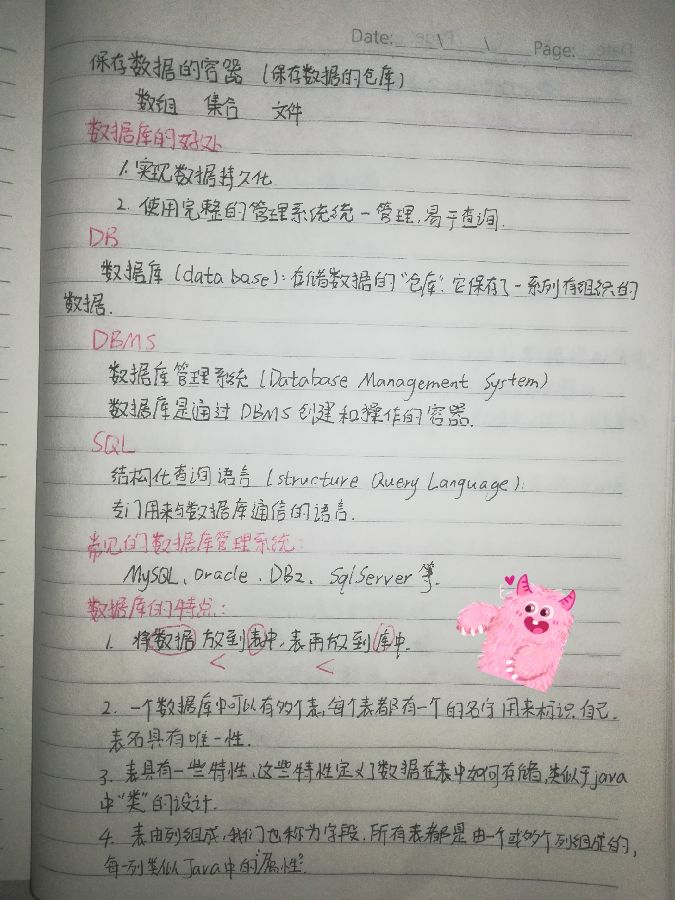 Date: / / Page:
保存数据的容器 (保存数据的仓库)
数组 集合 文件
数据库的好处
1. 实现数据持久化
2. 使用完整的管理系统统一管理,易于查询.
DB
数据库 (data base): 存储数据的"仓库". 它保存了一系列有组织的
数据.
DBMS
数据库管理系统 (Database Management System)
数据库是通过DBMS创建和操作的容器.
SQL
结构化查询语言 (structure Query Language):
专门用来与数据库通信的语言.
常见的数据库管理系统:
MySQL、Oracle、DB2、SqlServer等.
数据库的特点:
1. 将数据放到表中,表再放到库中.
< <
2. 一个数据库中可以有多个表,每个表都有一个的名字用来标识自己.
表名具有唯一性.
3. 表具有一些特性,这些特性定义了数据在表中如何存储,类似于java
中"类"的设计.
4. 表由列组成,我们也称为字段.所有表都是由一个或多个列组成的,
每一列类似Java中的"属性".